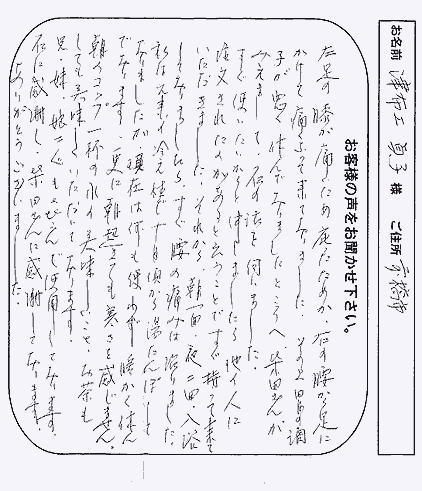 お名前 津布工 見子 様 ご住所 前橋市
お客様の声をお聞かせ下さい。
左足の膝が痛いため庇ったためか右の腰から足に
かけて痛くなって来てみました その上胃の調
子が悪く休んでみましたところへ柴田さんが
みえまして、石の話を伺いました
すぐ使いたいからと申しましたら他の人に
注文されたのがあると云うことですぐ持って来て
いただきました。それから、朝一回、夜二回、入浴
してみましたら、すぐ腰の痛みは治りました。
私は大変冷え性で十月頃から湯たんぽを
おりましたが、現在は何も使わず暖かく休ん
でおります、更に朝起きても寒さを感じません。
朝のコップ一杯の水の美味しいこと、お茶も
しても美味しくいただいております。
兄、妹、娘、よろこんで使用しております。
石に感謝し、柴田さんに感謝しております。
ありがとうございました。